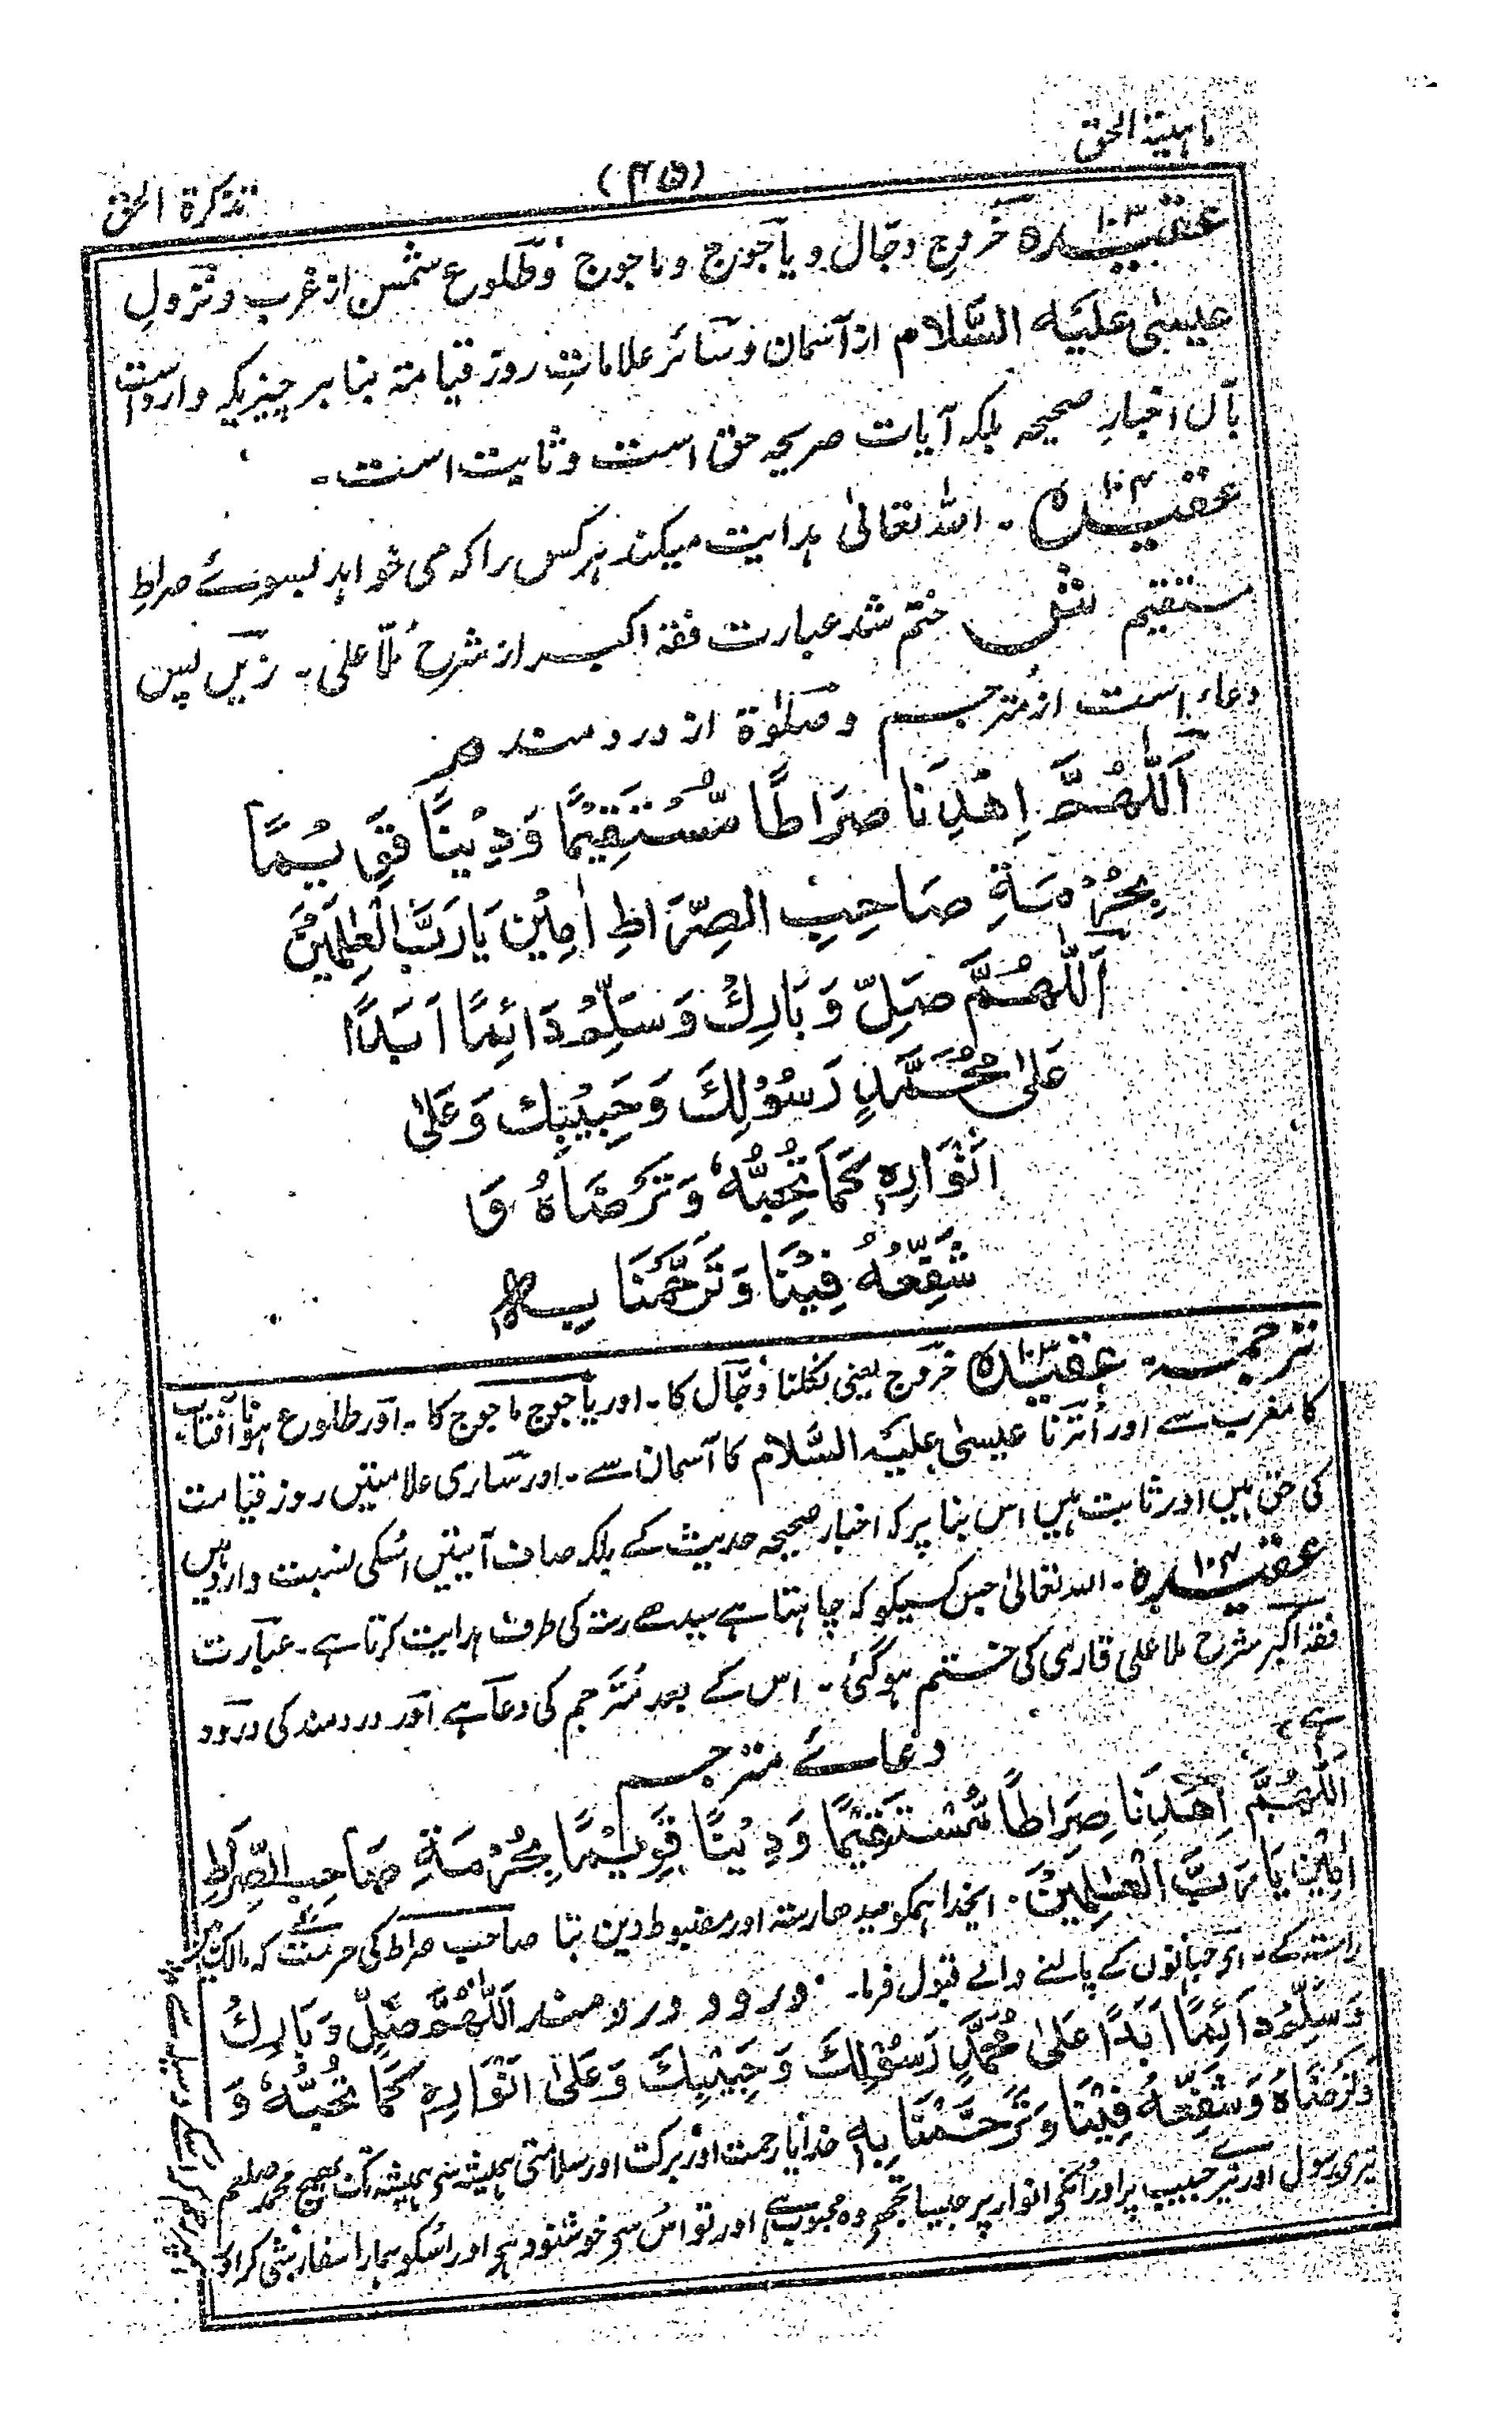 ماہیتہ الحق
(۴۵)
تذکرۃ الحق
عقیدہ ۱۰۳ خروج دجّال و یاجوج و ماجوج و طلوع شمس از غرب و نزولِ
عیسیٰ علیہ السَّلام از آسمان و سائر علاماتِ روز قیامتہ بنا بر چیزیکہ وارد است
بآں اخبارِ صحیحہ بلکہ آیات صریحہ حق است و ثابت است۔
عقیدہ ۱۰۴ ۔ اللہ تعالیٰ ہدایت میکند ہر کس را کہ می خواہد بسوئے صراطِ
مستقیم ش ختم شد عبارت فقہ اکبر از شرح مُلّا علی ۔ زیں پس
دعاء است از مترجم و صلوٰۃ از دردمند
اَللّٰهُمَّ اِهْدِنَا صِرَاطًا مُّسْتَقِيْمًا وَدِيْنًا قَوِيْمًا
بِحُرْمَةِ صَاحِبِ الصِّرَاطِ اٰمِيْن يَا رَبَّ الْعٰلَمِيْنَ
اَللّٰهُمَّ صَلِّ وَبَارِكْ وَسَلِّمْ دَائِمًا اَبَدًا
عَلٰى مُحَمَّدٍ رَسُوْلِكَ وَحَبِيْبِكَ وَعَلٰى
اَنْوَارِهٖ كَمَا تُحِبُّهٗ وَتَرْضَاهُ وَ
شَفِّعْهُ فِيْنَا وَتَرَحَّمْنَا بِهٖ
ترجمہ عقیدہ ۱۰۳ خروج یعنی نکلنا دجّال کا ۔ اور یاجوج ماجوج کا ۔ اور طلوع ہونا آفتاب
کا مغرب سے اور اُترنا عیسیٰ علیہ السَّلام کا آسمان سے ۔ اور ساری علامتیں روز قیامت
کی حق ہیں اور ثابت ہیں اس بنا پر کہ اخبار صحیحہ حدیث کے بلکہ صاف آیتیں اُسکی نسبت وارد ہیں
عقیدہ ۱۰۴ ۔ اللہ تعالیٰ جس کسیکو کہ چاہتا ہے سیدھے رستہ کی طرف ہدایت کرتا ہے ۔ عبارت
فقہ اکبر شرح ملا علی قاری کی ختم ہوگئی ۔ اس کے بعد مُترجم کی دعا ہے اور دردمند کی درود
ہے ۔
دعائے مترجم
اَللّٰهُمَّ اِهْدِنَا صِرَاطًا مُّسْتَقِيْمًا وَدِيْنًا قَوِيْمًا بِحُرْمَةِ صَاحِبِ الصِّرَاطِ
اٰمِيْن يَا رَبَّ الْعٰلَمِيْنَ ۔ ایخدا ہمکو سیدھا رستہ اور مضبوط دین بتا صاحب صراط کی حرمت سے کہ مالک ہیں
راستہ کے ۔ اے جہانوں کے پالنے والے قبول فرما ۔ درود دردمند اَللّٰهُمَّ صَلِّ وَبَارِكْ
وَسَلِّمْ دَائِمًا اَبَدًا عَلٰى مُحَمَّدٍ رَسُوْلِكَ وَحَبِيْبِكَ وَعَلٰى اَنْوَارِهٖ كَمَا تُحِبُّهٗ وَ
تَرْضَاهُ وَشَفِّعْهُ فِيْنَا وَتَرَحَّمْنَا بِهٖ خدایا رحمت اور برکت اور سلامتی ہمیشہ سی ہمیشہ تک بھیج محمد صلعم
تیری رسول اور تیرے حبیب پر اور اُنکی انوار پر جیسا تجھی وہ محبوب ہے اور تو اُس سی خوشنود ہی اور اُسکو ہمارا سفارشی کرا اور